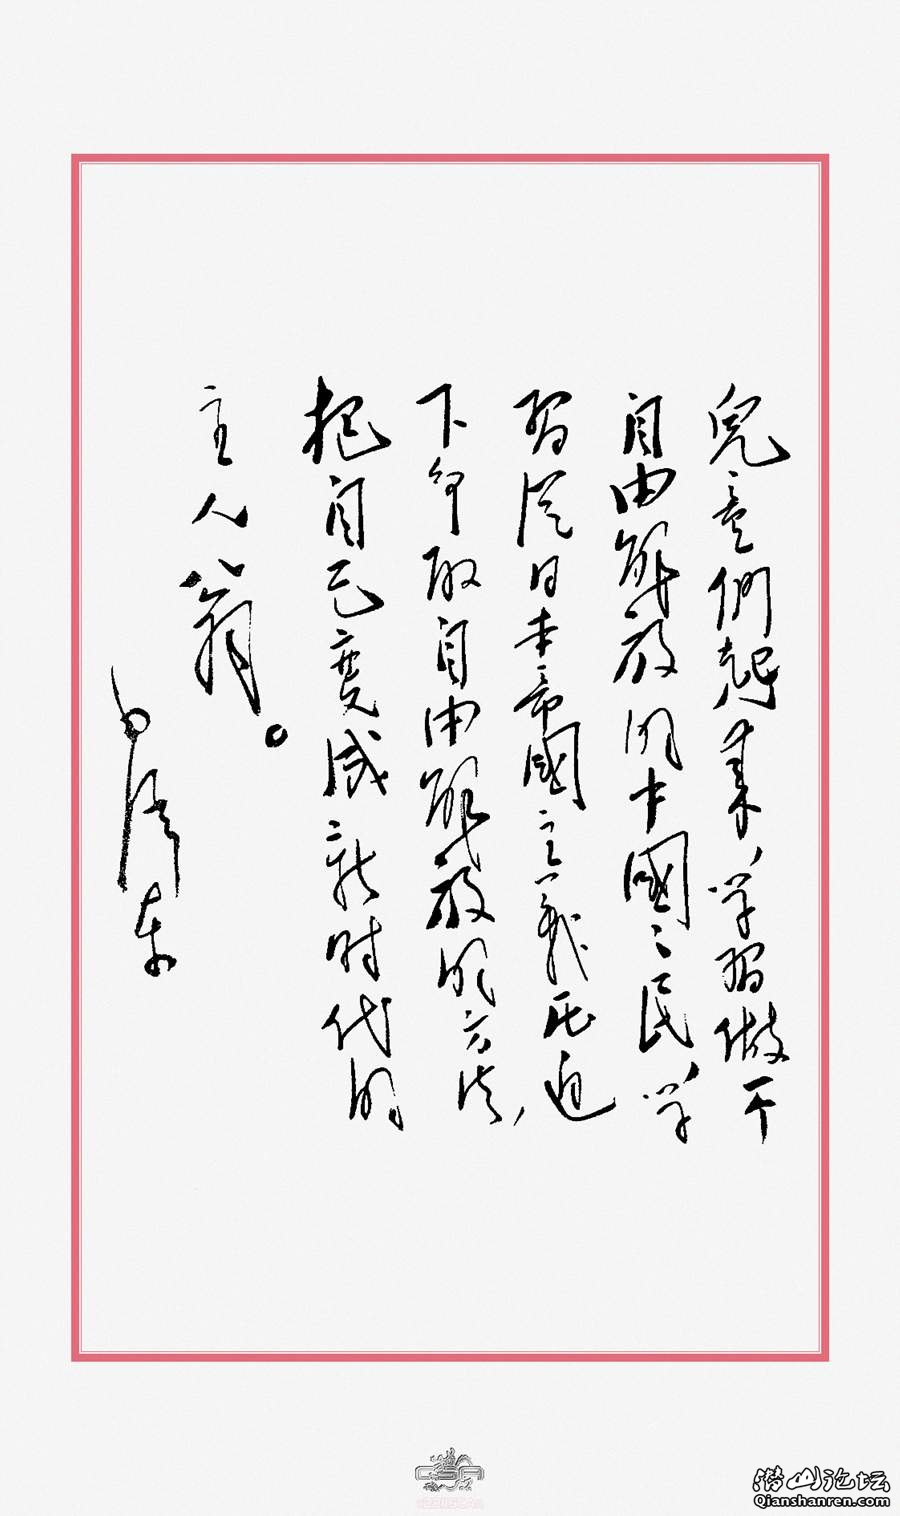 兒童們起來，学習做一个
自由解放的中國國民，学
習從日本帝國主義压迫
下争取自由解放的方法，
把自己變成新时代的
主人翁。
毛澤東
潜山论坛
Qianshanren.com